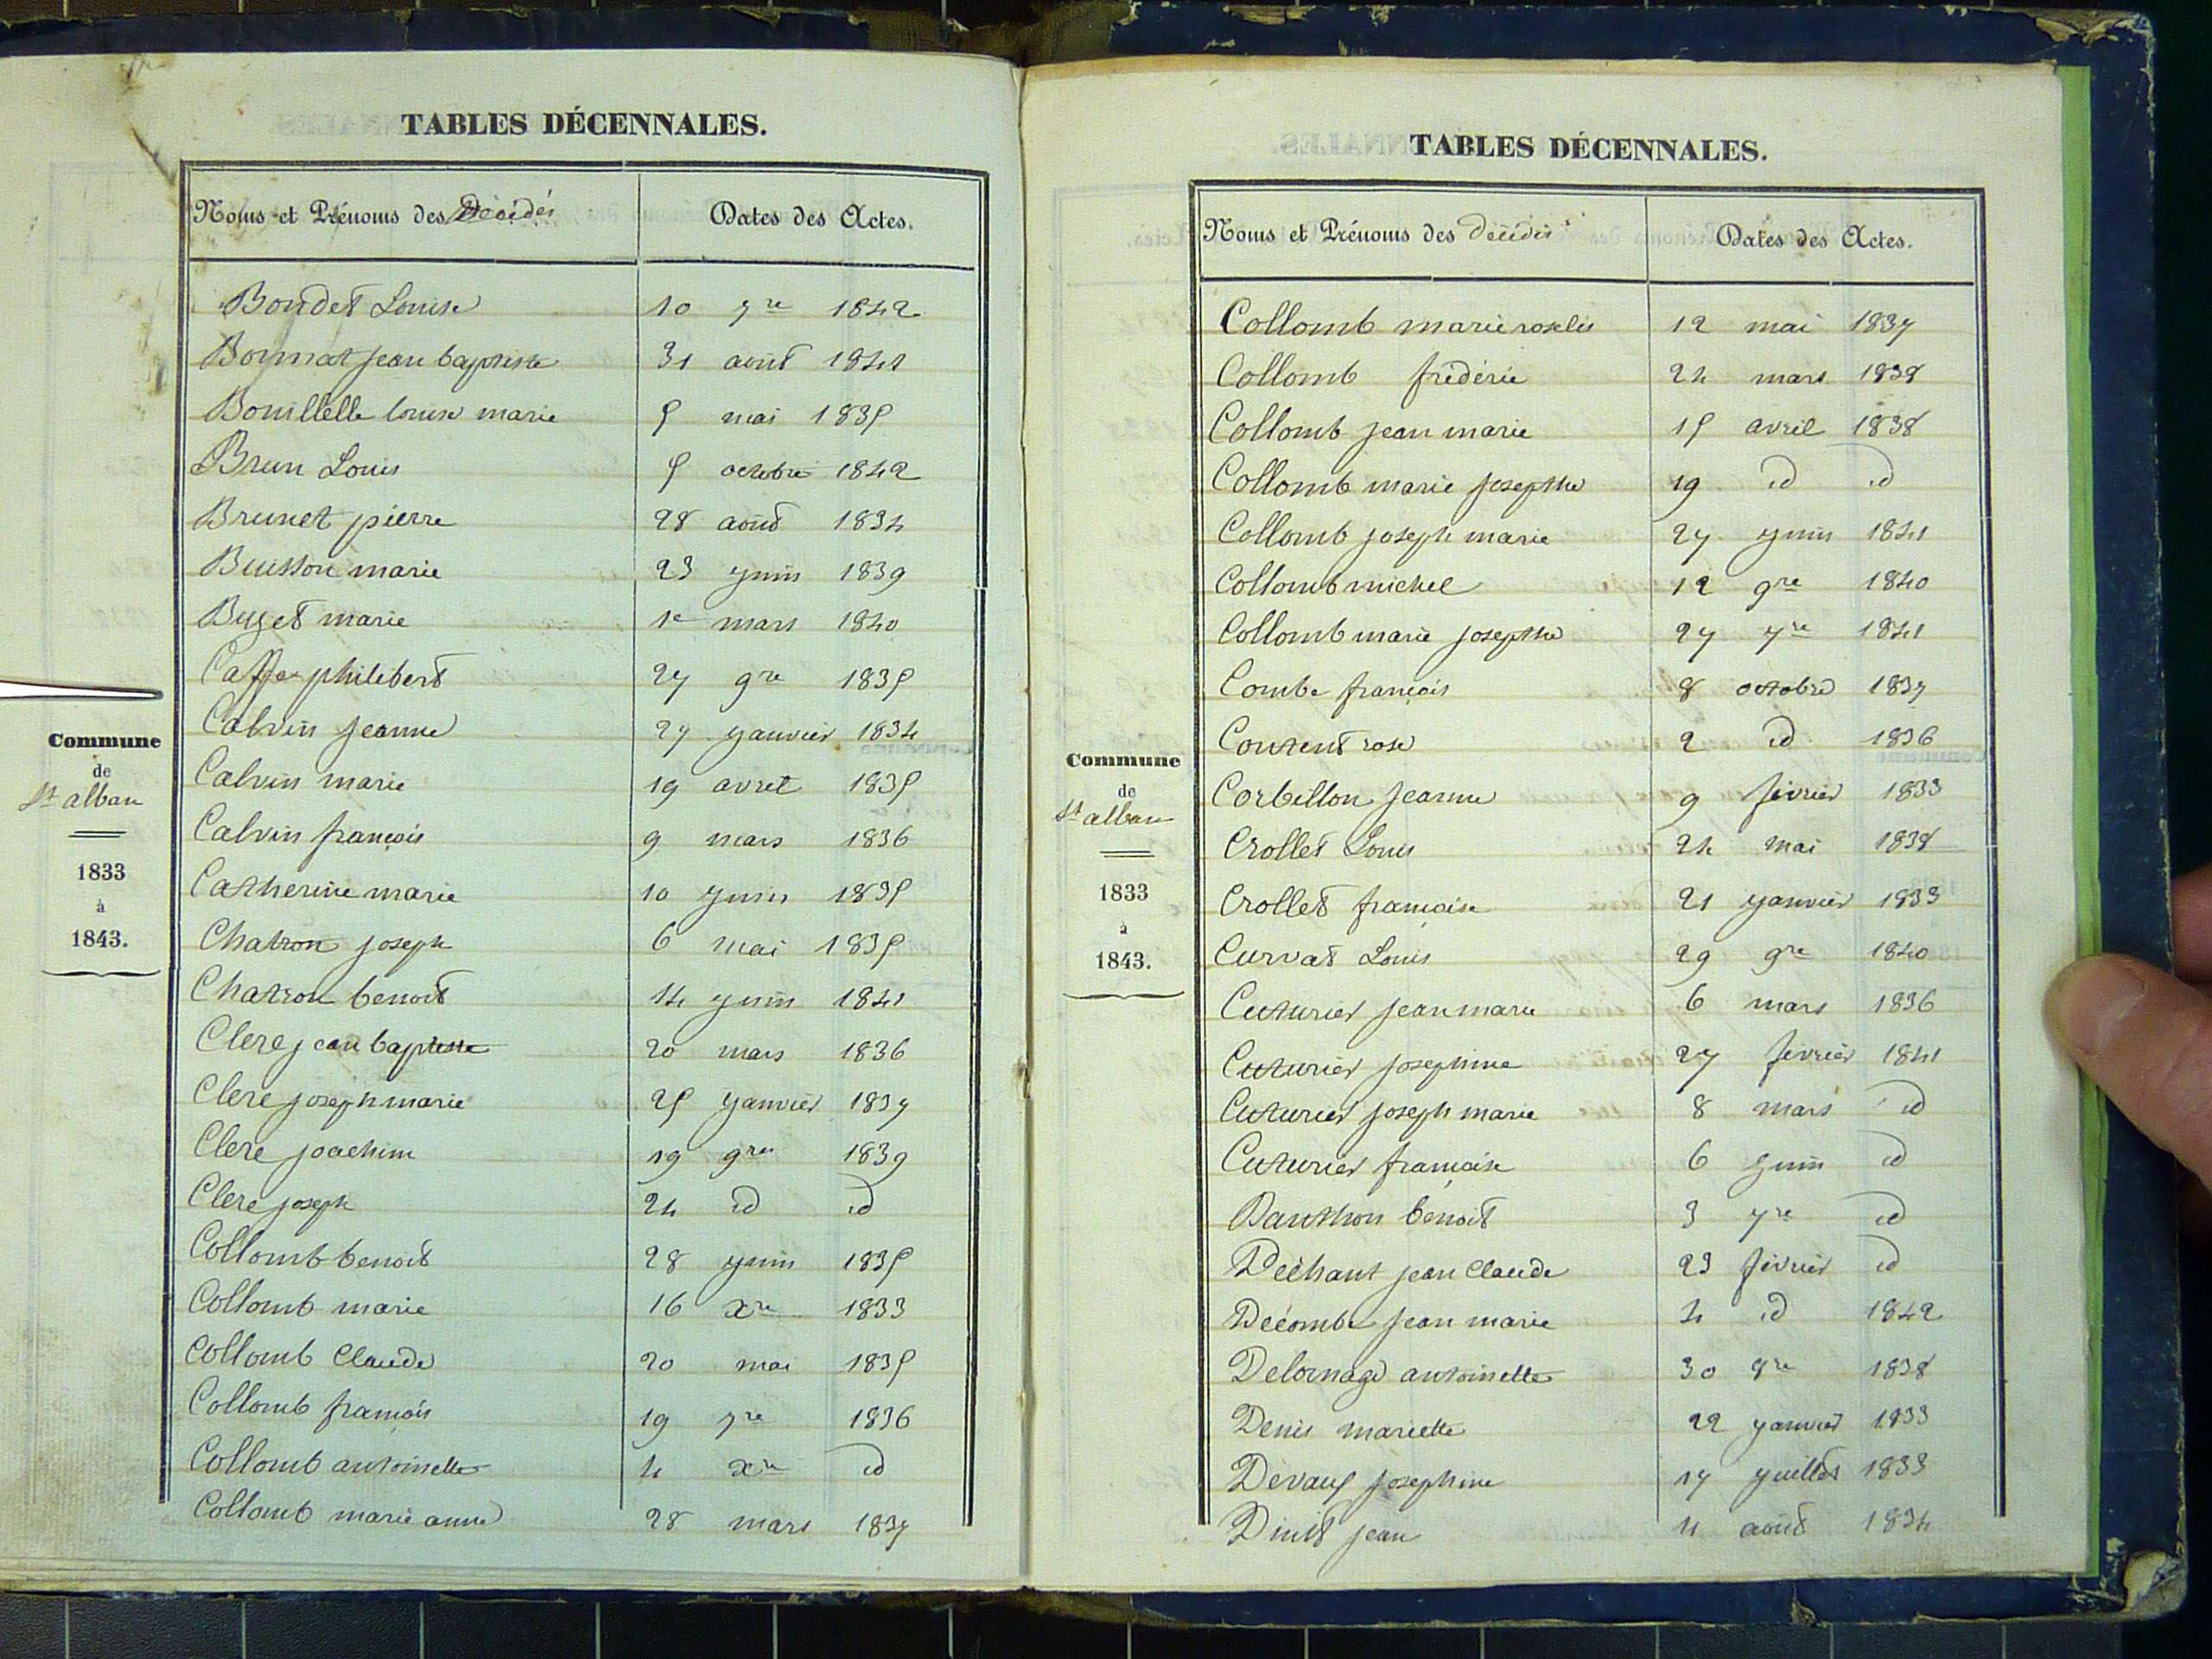 TABLES DÉCENNALES.
Noms et Prénoms des Décédés Dates des Actes.
Boudet Louise 10 7re 1842
Bonnat jean baptiste 31 août 1841
Bouillelle louise marie 5 mai 1835
Brun Louis 5 octobre 1842
Brunet pierre 28 août 1834
Buisson marie 23 juin 1839
Buget marie 1e mars 1840
Caffe philibert 27 9re 1835
Calvin jeanne 27 janvier 1834
Calvin marie 19 avril 1835
Calvin françois 9 mars 1836
Catherine marie 10 juin 1835
Chatron joseph 6 mai 1835
Chatron benoit 14 juin 1841
Clere jean baptiste 20 mars 1836
Clere joseph marie 25 janvier 1837
Clere joachim 19 9re 1839
Clere joseph 24 id id
Collomb benoit 28 juin 1835
Collomb marie 16 Xre 1833
Collomb Claude 20 mai 1835
Collomb françois 19 7re 1836
Collomb antoinette 4 Xre id
Collomb marie anne 28 mars 1837
Commune
de
St alban
1833
à
1843.
TABLES DÉCENNALES.
Noms et Prénoms des Décédés Dates des Actes.
Collomb marie roselie 12 mai 1837
Collomb fréderic 24 mars 1838
Collomb jean marie 15 avril 1838
Collomb marie josephte 19 id id
Collomb joseph marie 27 juin 1841
Collomb michel 12 9re 1840
Collomb marie josephte 27 7re 1841
Combe françois 8 octobre 1837
Coutent rose 2 id 1836
Corbillon jeanne 9 février 1833
Crollet Louis 24 mai 1838
Crollet françoise 21 janvier 1833
Curvat Louis 29 9re 1840
Cuturier jean marie 6 mars 1836
Cuturier josephine 27 février 1841
Cuturier joseph marie 8 mars id
Cuturier françoise 6 juin id
Danthon benoit 3 7re id
Dechant jean Claude 23 février id
Decombe jean marie 4 id 1842
Delornage antoinette 30 8re 1838
Denis mariette 22 janvier 1833
Devaux josephine 17 juillet 1833
jean 11 août 1834
Commune
de
St alban
1833
à
1843.